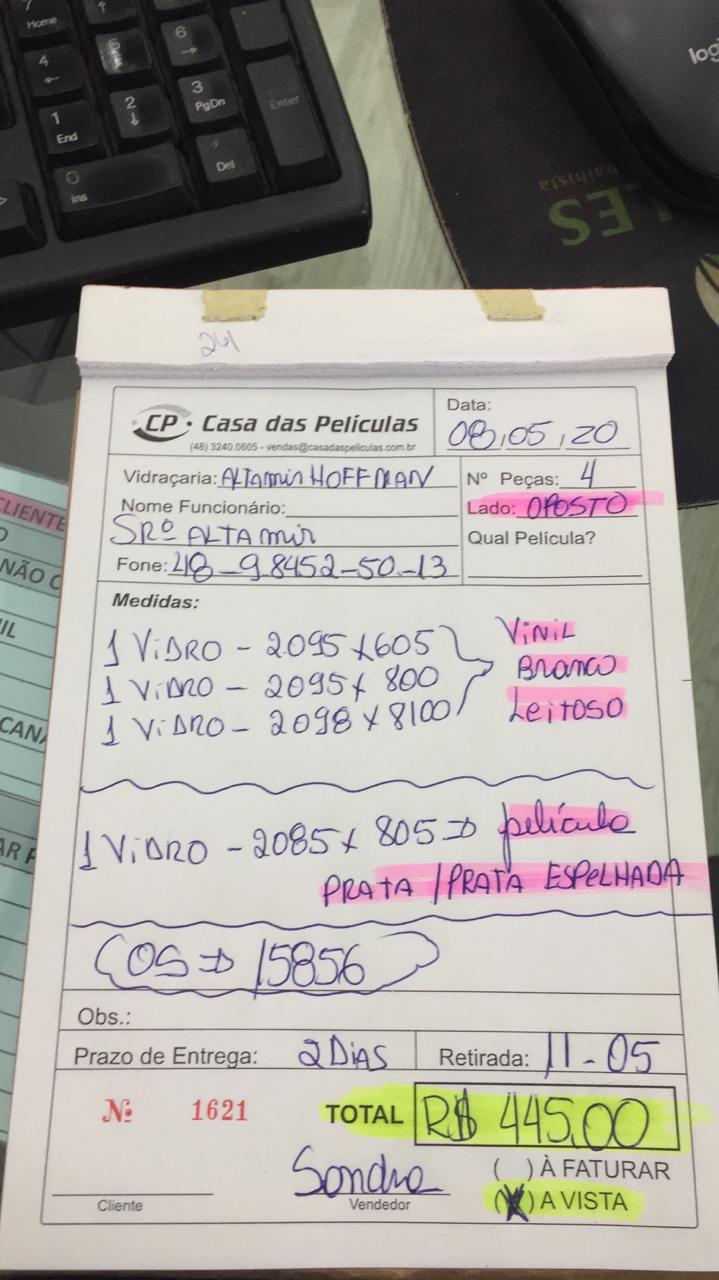 7
Home
4
6
1
End
2
3
PgDn
Enter
0
Ins
Del
logi
LES
balhista
261
CP Casa das Películas
(48) 3240.0605 - vendas@casadaspeliculas.com.br
Data:
08,05,20
Vidraçaria: ALTAmir HOFFMAN
Nº Peças: 4
Nome Funcionário:
SRº ALTAmir
Lado: OPOSTO
Fone: 48-98452-50-13
Qual Película?
Medidas:
1 ViDRO - 2095 x 605
1 ViDRO - 2095 x 800
1 ViDRO - 2098 x 8100
ViNiL
Branco
Leitoso
1 ViDRO - 2085 x 805 => película
PRATA / PRATA ESPELHADA
OS => 15856
Obs.:
Prazo de Entrega: 2 DiAS
Retirada: 11-05
Nº 1621
TOTAL R$ 445,00
Sandra
( ) À FATURAR
Cliente
Vendedor
(X) A VISTA
CLIENTE
NÃO